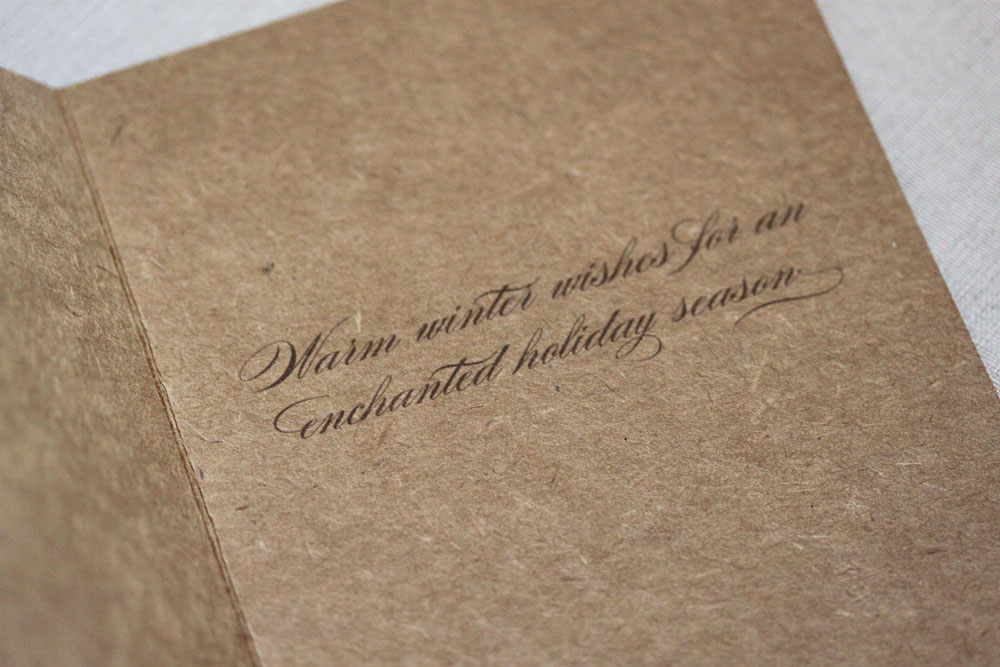 Warm winter wishes for an
enchanted holiday season